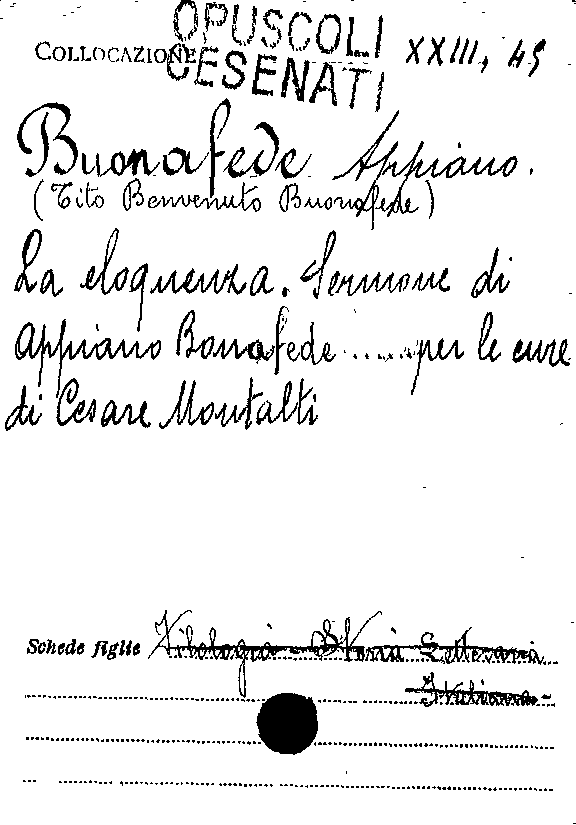 OPUSCOLI
COLLOCAZIONE CESENATI XXIII, 45
Buonafede Appiano.
(Tito Benvenuto Buonafede)
La eloquenza. Sermone di
Appiano Bonafede ........ per le cure
di Cesare Montalti
Schede figlie Filologia - Storia Letteraria
Italiana -